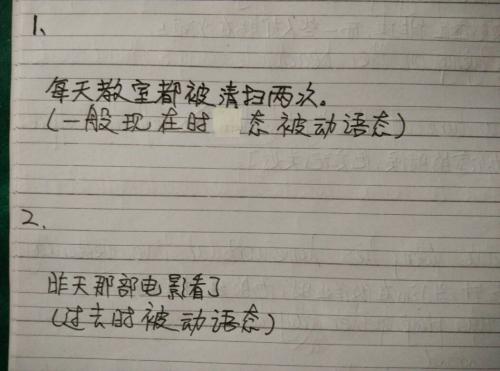 1、
每天教室都被清扫两次。
(一般现在时 态被动语态)
2、
昨天那部电影看了
(过去时被动语态)